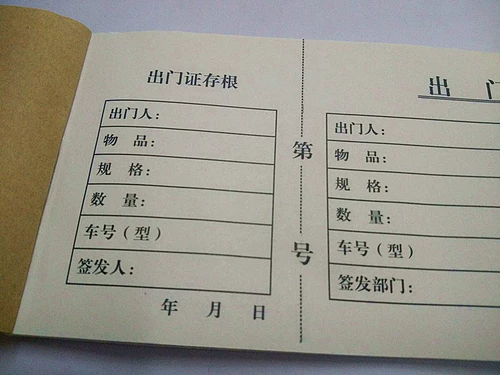 出门证存根
出门人：
物 品：
规 格：
数 量：
车号（型）
签发人：
年 月 日
第
号
出
出门人：
物 品：
规 格：
数 量：
车号（型）
签发部门：